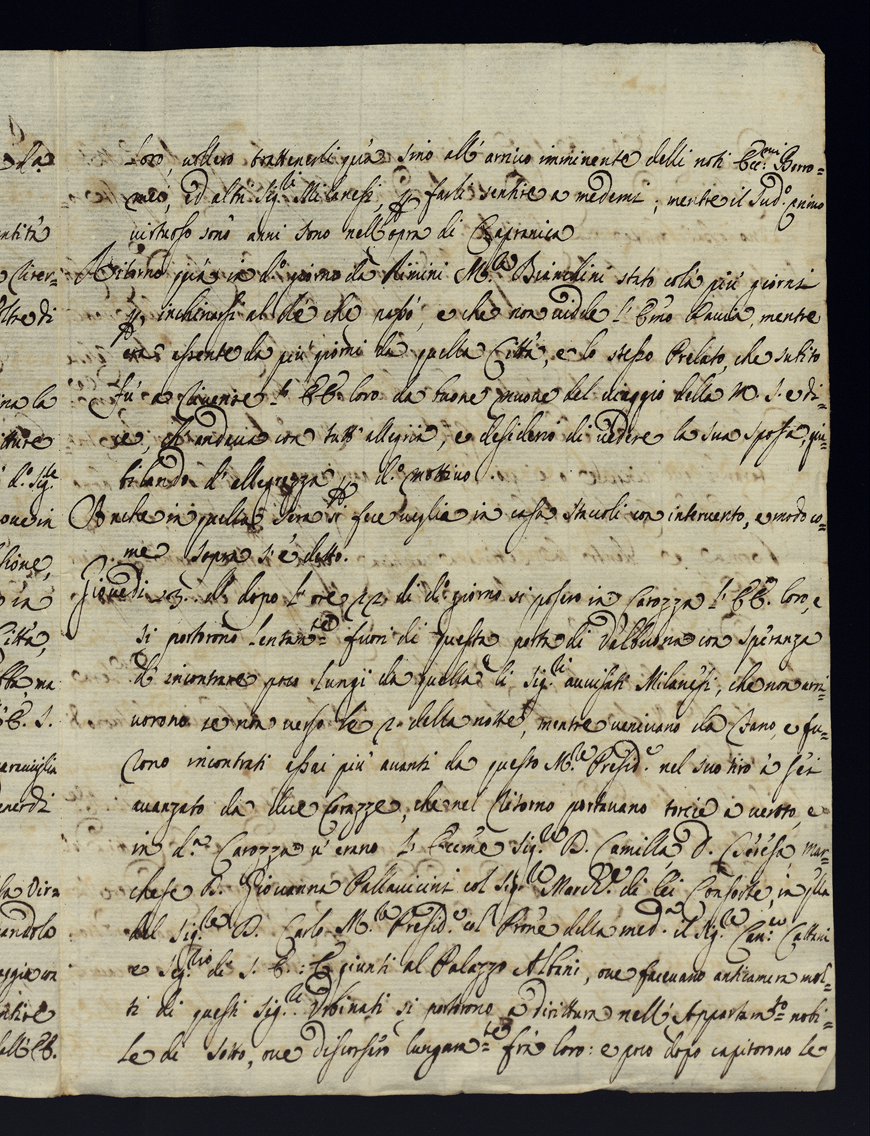 loro, vollero trattenerli quà sino all'arrivo imminente delli noti Ecc.mi Borro=
mei, ed altri Sig.li Milanesi, p farli sentire a medemi; mentre il Sud.o primo
virtuoso sono anni sono nell'opra di Capranica
Ritorno quà in d.o giorno da Rimini M.r Bianchini stato colà più giorni
p inchinarsi al Ré che passò, e che non vidde l'Emo Paulucci, mentre
era assente da più giorni da quella Città, e lo stesso Prelato, che subito
fù a riverire l'EE. loro da buone nuove del viaggio della M. S. e di=
ce, che andava con tutt'allegria, e desiderio di vedere la sua sposa, giu=
bilando d'allegrezza p d.o mottivo.
Anche in quella sera si fece veglia in casa Staccoli con intervento, e modo co=
me sopra s'è detto.
Giovedi 23. d.o dopo l'ore 22 di d.o giorno si posero in Carozza l'EE. loro, e
si portorono lentam.te fuori di questa porta di Valbuona con speranza
di incontrare poco lungi da quella li Sig.li avvisati Milanesi, che non arri=
vorono se non verso le 2. della notte, mentre venivano da Fano, e fu=
rono incontrati assai più avanti da questo M.r Presid.e nel suo tiro à sei
avanzato da due Corazze, che nel ritorno portavano torcie à vento, e
in d.a Carozza v'erano l'Eccme Sig.re D. Camilla D. Teresa, mar=
chese D. Giovanna Pallavicini col Sig.r March.e di lei Consorte, in q.lla
del Sig.r D. Carlo M.r Presid.e col Prone della med.a il Sig.r Can.co Cattani
e Seg.rio di S. E.: E giunti al Palazzo Albini, ove facevano anticamera mol=
ti di questi Sig.li Urbinati si portorono a dirittura nell'Appartam.to nobi=
le di sotto, ove discorsero lungam.te frà loro: e poco dopo capitorono le